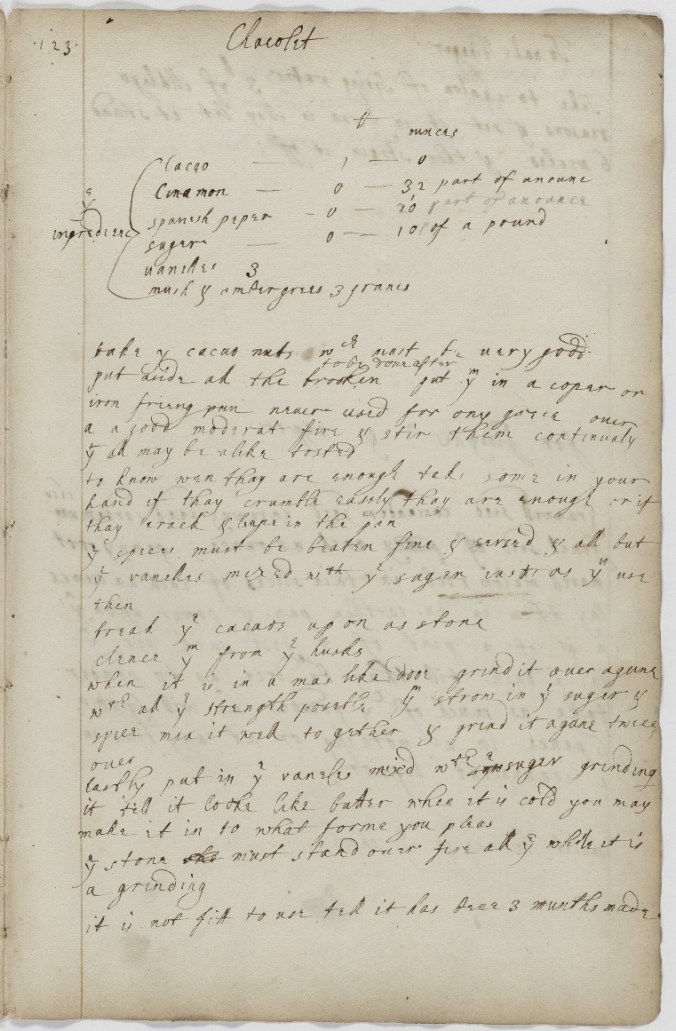 ·123· Chacolet
tt ounces
Cacao — 1 — 0
Cinamon — 0 — 32 part of anounce
yᵉ spanish peper - 0 — 20 part of anounce
ingredienc sugar — 0 — 10 of a pound
vanelles 3
musk & ambergrees 3 granes
take yᵉ cacao nuts wᶜʰ must be uery good
to be done after
put aside all the brooken put yᵐ in a coper or
iron friing pan neuer used for any grece ouer
a a good moderat fire & stir them continualy
yᵗ all may be alike tosted
to know wen thay are enough take some in your
hand if thay crumble easely thay are enough or if
thay crack & leape in the pan
yᵉ spices must be beaten fine & searsed & all but
yᵉ vanelles mixed wᵗʰ yᵉ sugar just as yᵘ use
them
break yᵉ cacaos up on as stone
clence yᵐ from yᵉ husks
when it is in a mas like dooe grind it ouer agane
wᵗʰ all yᵉ strength posible yⁿ strow in yᵉ sugar &
spice mix it well to gether & grind it agane twice
ouer
lastly put in yᵉ vaneles mixd wᵗʰ yᵉ sugar grinding
it tell it looke like batter when it is cold you may
make it in to what forme you pleas
yᵉ stone must stand ouer fire all yᵉ while it is
a grinding
it is not fitt to use tell it has bene 3 munths made